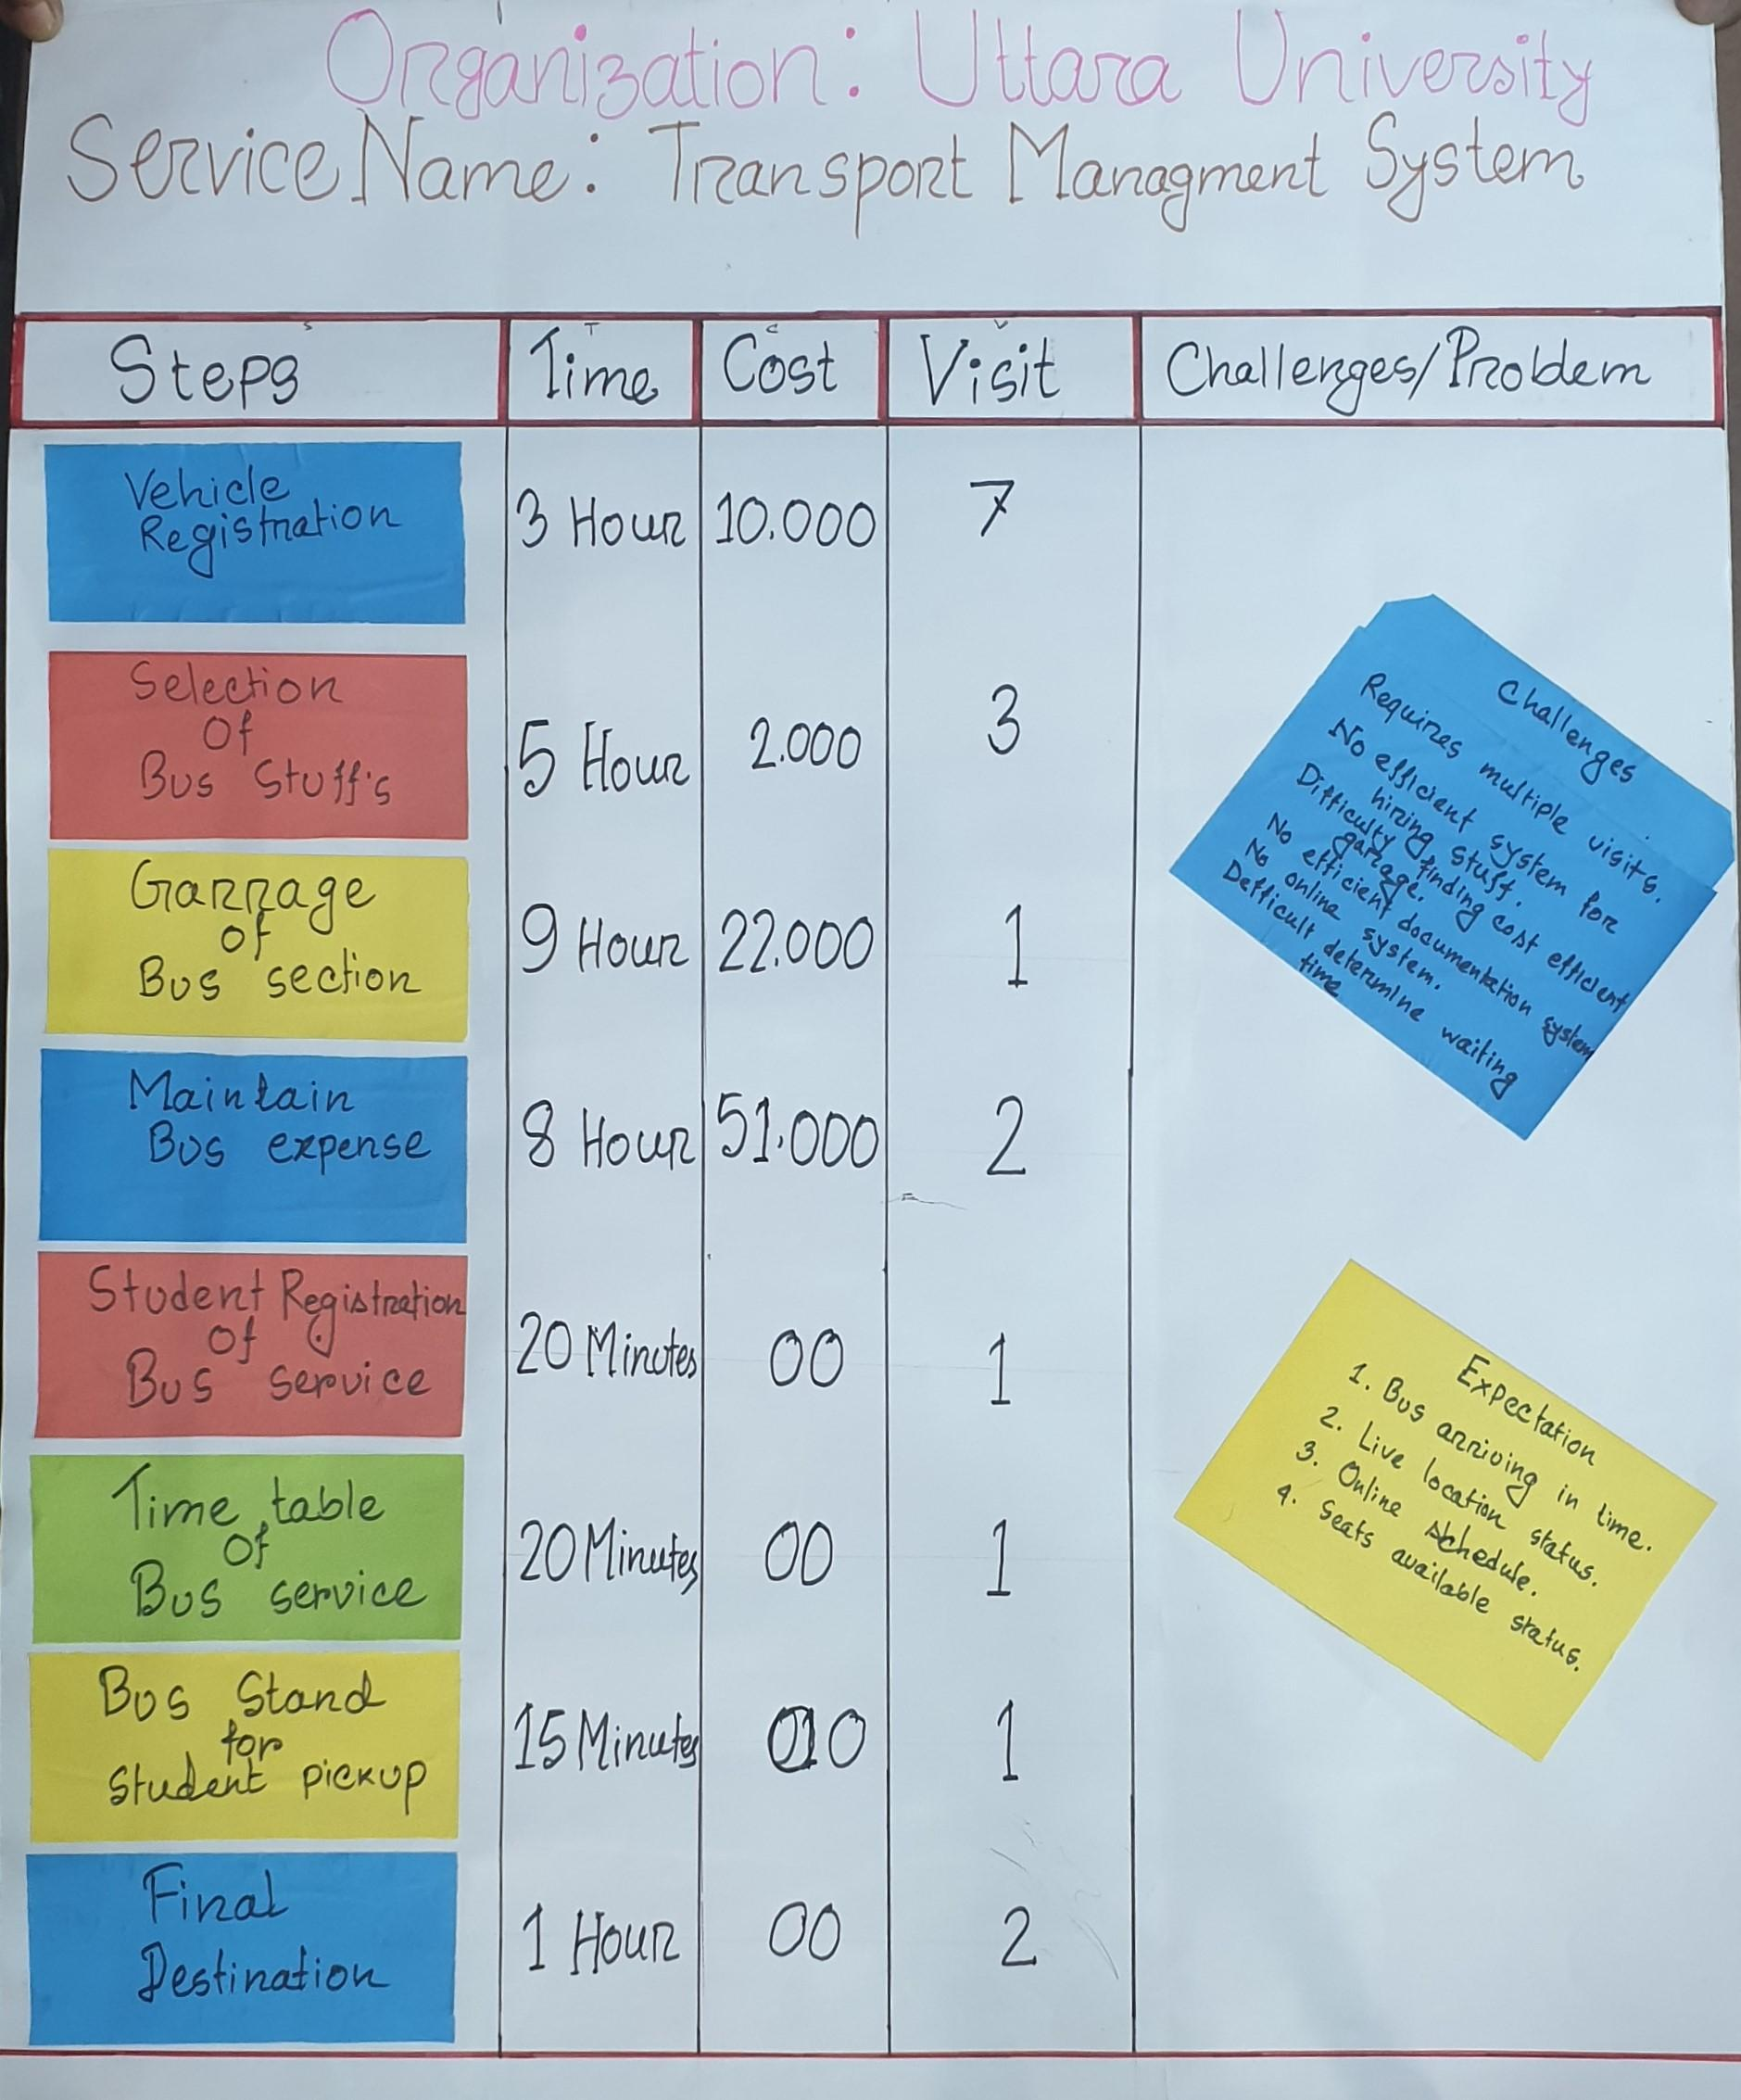 Organization: Uttara University
Service Name: Transport Managment System
Steps Time Cost Visit Challenges/Problem
Vehicle
Registration
3 Hour 10.000 7
Selection
Of
Bus Stuff's
5 Hour 2.000 3
Garrage
of
Bus section
9 Hour 22.000 1
Maintain
Bus expense
8 Hour 51.000 2
Student Registration
Of
Bus service
20 Minutes 00 1
Time table
Of
Bus service
20 Minutes 00 1
Bus Stand
for
Student pickup
15 Minutes 1
Final
Destination
1 Hour 00 2
Challenges
Requires multiple visits.
No efficient system for
hiring stuff.
Difficulty finding cost efficient
garrage.
No efficient documentation system
No online system.
Defficult determine waiting
time
Expectation
1. Bus arriving in time.
2. Live location status.
3. Online schedule.
4. Seats available status.